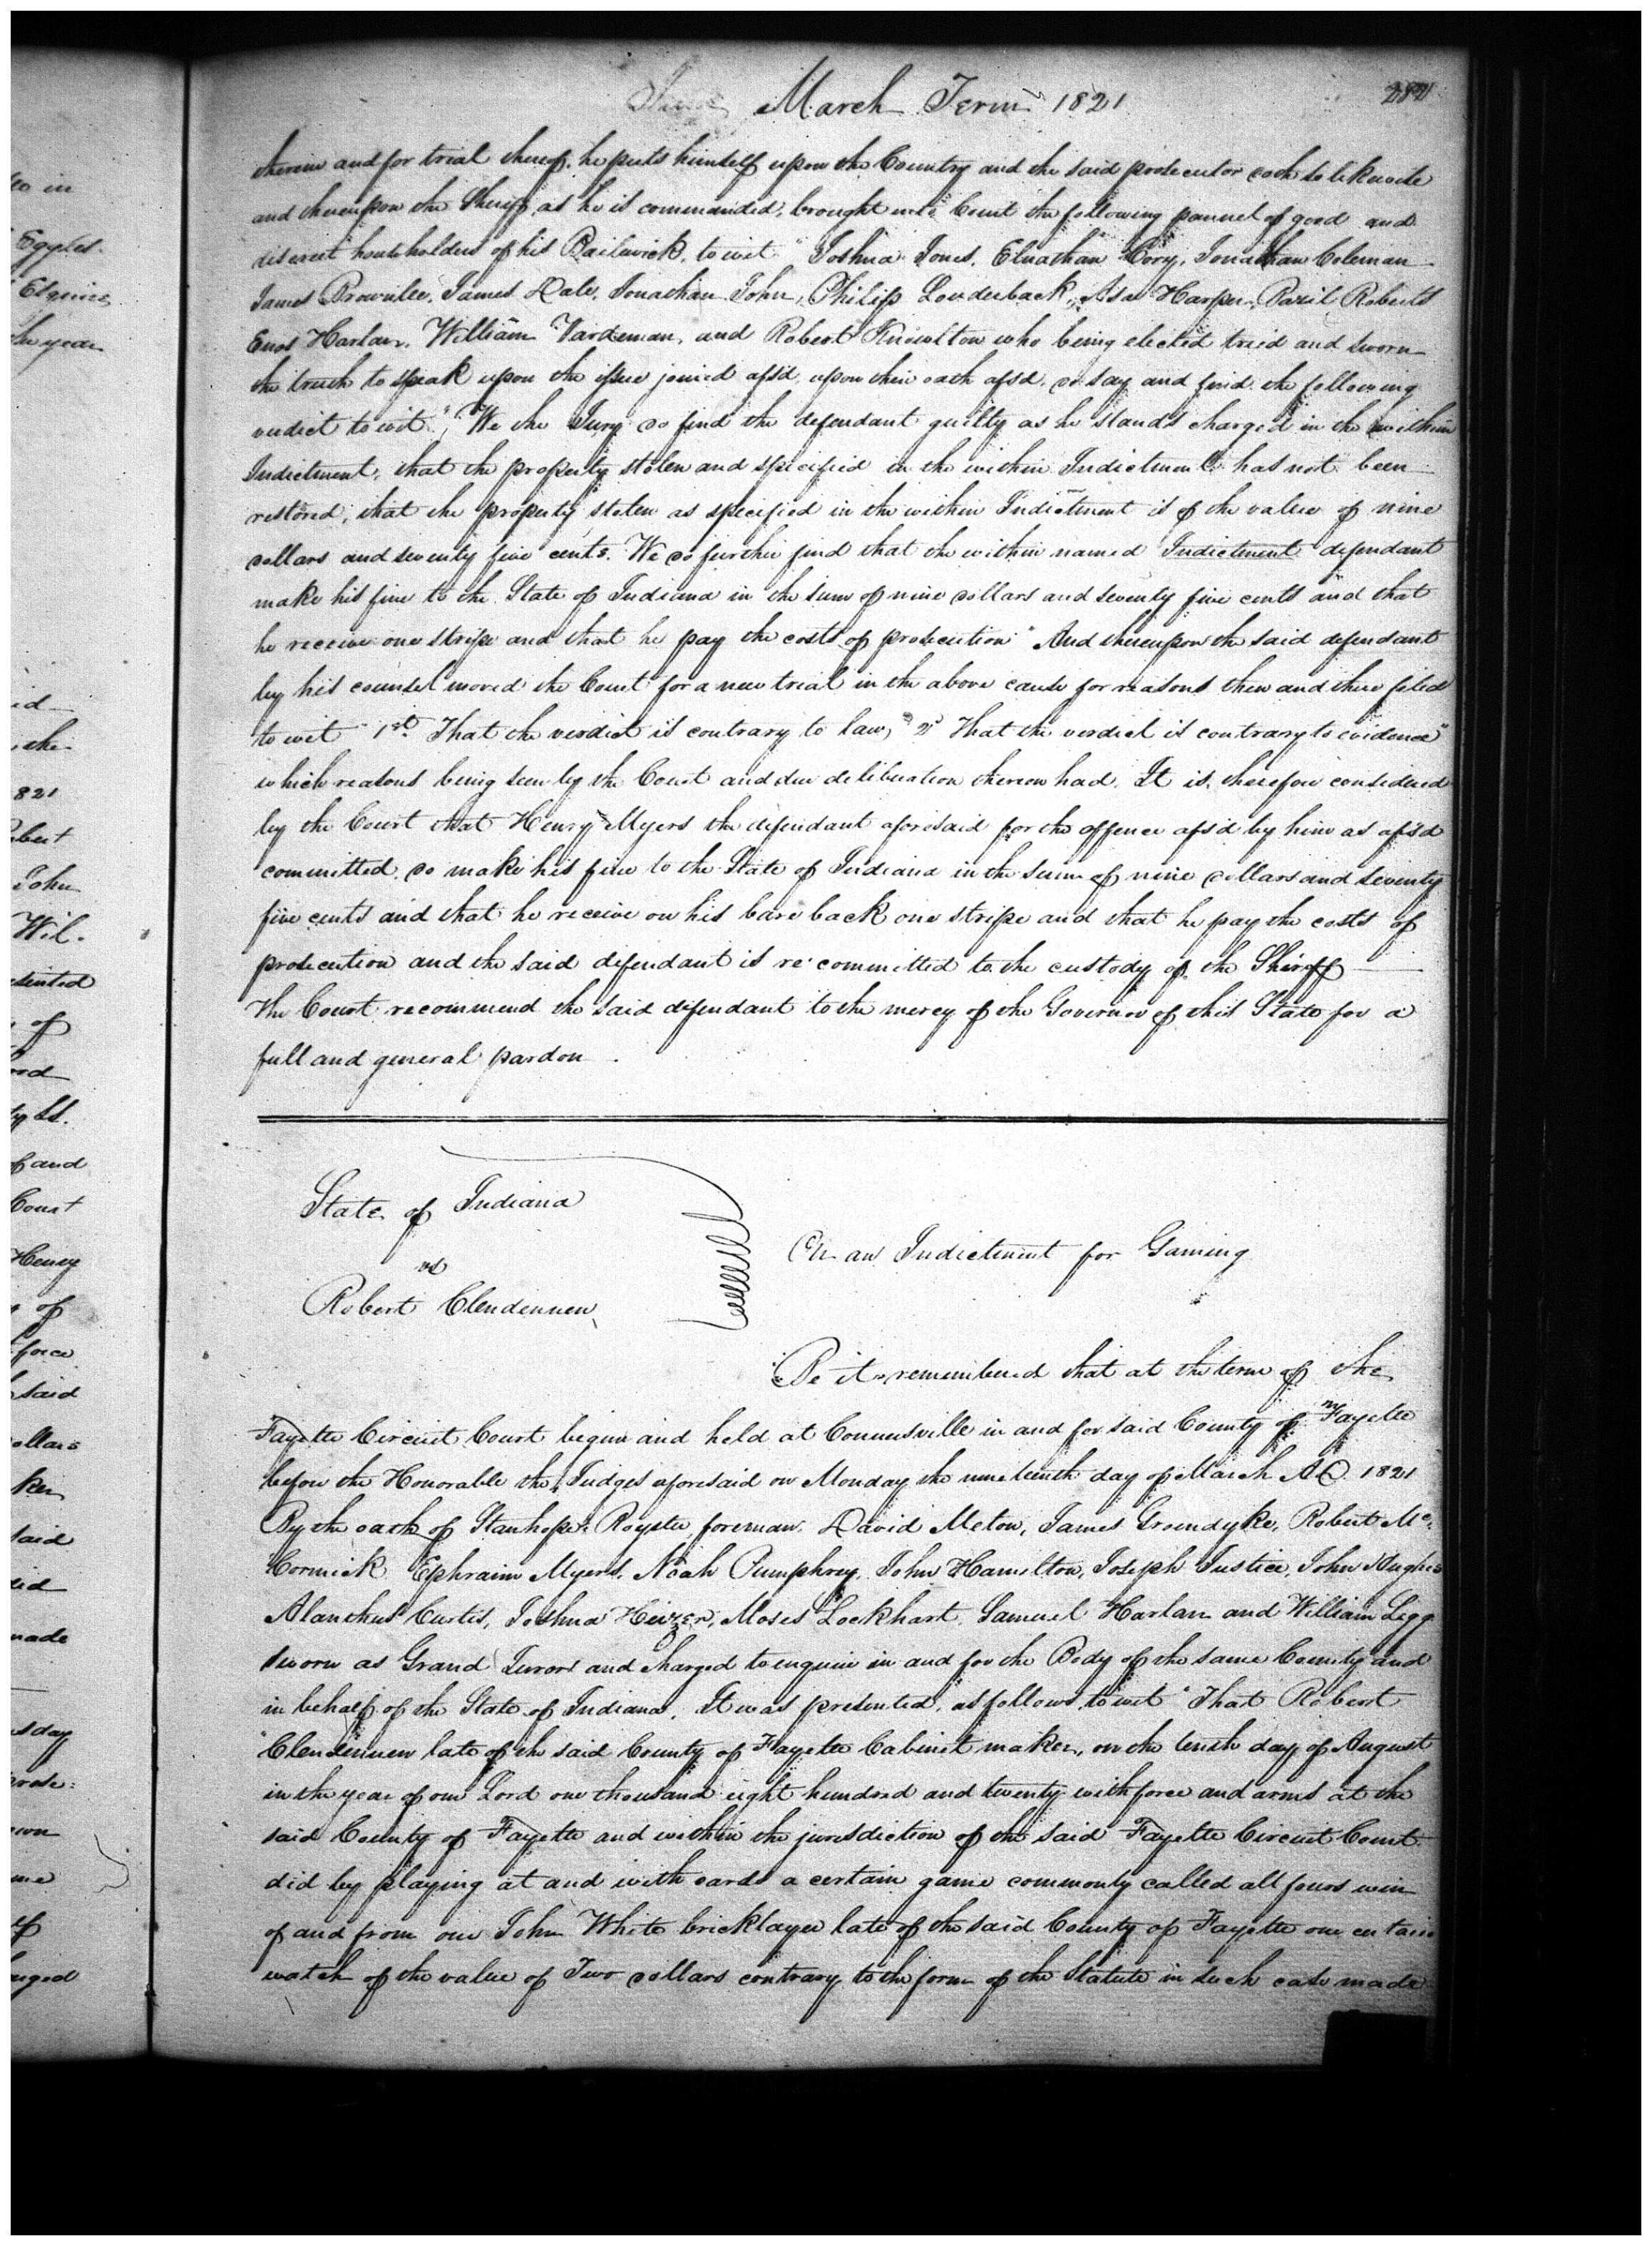 March Term 1821
281
therein and for trial thereof. he puts himself upon the Country and the said prosecutor doth so likewise
and thereupon the Sheriff, as he is commanded, brought into Court the following pannel of good and
discreet householders of his Bailiwick, to wit " Joshua Jones, Elnathan Cory, Jonathan Coleman
James Brownlee, James Dale, Jonathan John, Philip Louderback, Asa Harper, Bazil Roberts
Enos Harlan, William Vardeman, and Robert Knowlton who being elected tried and sworn
the truth to speak upon the issue joined afsd. upon their oath afsd. do say and find the following
verdict to wit " We the Jury do find the defendant guilty as he stands charged in the within
Indictment, that the property stolen and specified in the within Indictment has not been
restored, that the property stolen as specified in the within Indictment is of the value of nine
dollars and seventy five cents. We do further find that the within named Indictment defendant
make his fine to the State of Indiana in the sum of nine dollars and seventy five cents and that
he receive one stripe and that he pay the costs of prosecution" And thereupon the said defendant
by his counsel moved the Court for a new trial in the above cause for reasons then and there filed
to wit " 1st. That the verdict is contrary to law, 2d That the verdict is contrary to evidence"
which reasons being seen by the Court and due deliberation thereon had. It is, therefore considered
by the Court that Henry Myers the defendant aforesaid for the offence afsd by him as afsd
committed, do make his fine to the State of Indiana in the sum of nine dollars and seventy
five cents and that he receive on his bare back one stripe and that he pay the costs of
prosecution and the said defendant is re-committed to the custody of the Sheriff
The Court recommend the said defendant to the mercy of the Governor of this State for a
full and general pardon.
State of Indiana
vs
Robert Clendennen
On an Indictment for Gaming
Be it remembered that at the term of the
Fayette Circuit Court begun and held at Connersville in and for said County of Fayette
before the Honorable the Judges aforesaid on Monday the nineteenth day of March A.D. 1821
By the oath of Stanhope Royster, foreman, David Meton, James Groendyke, Robert Mc.
Cormick Ephraim Myers, Noah Pumphrey, John Hamilton, Joseph Justice, John Hughes
Alanthus Curtis, Joshua Heizer, Moses Lockhart, Samuel Harlan and William Legg
sworn as Grand Jurors and charged to enquire in and for the Body of the same County and
in behalf of the State of Indiana. It was presented, as follows to wit " That Robert
"Clendennen late of the said County of Fayette Cabinet maker, on the tenth day of August
in the year of our Lord one thousand eight hundred and twenty with force and arms at the
said County of Fayette and within the jurisdiction of the said Fayette Circuit Court
did by playing at and with cards a certain game commonly called all fours win
of and from one John White bricklayer late of the said County of Fayette one certain
watch of the value of Two dollars contrary to the form of the Statute in such case made